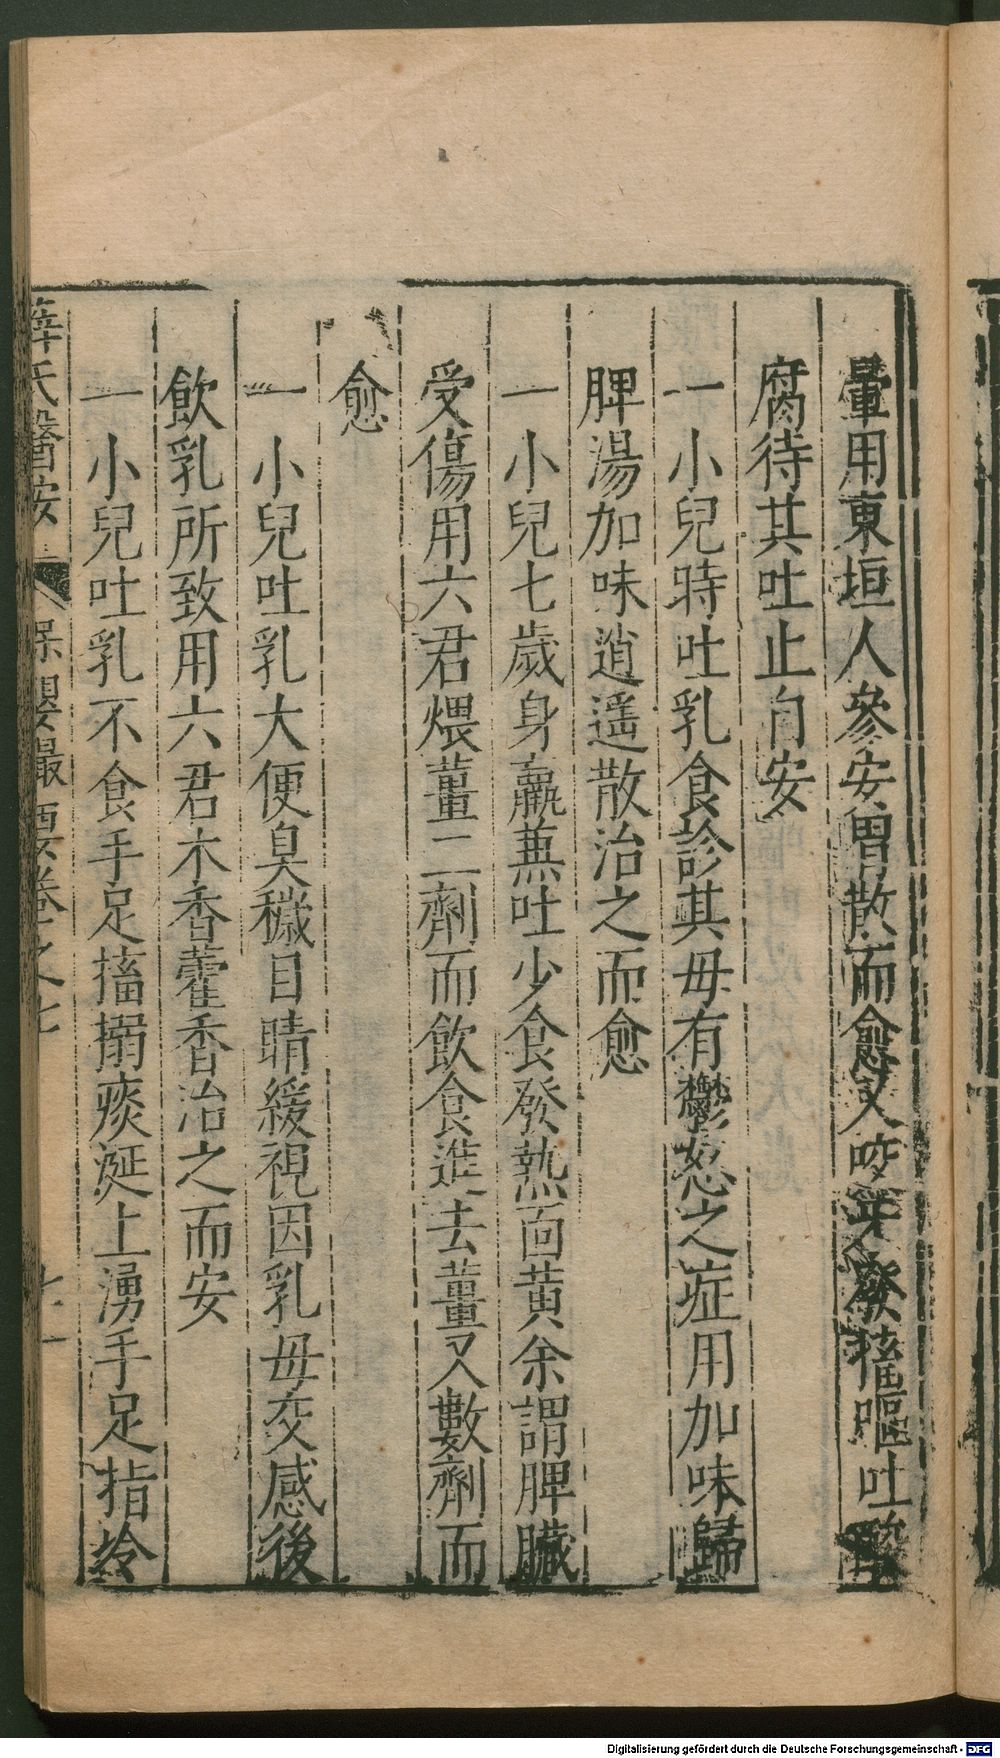 暈用東垣人參安胃散而愈又咬牙發搐嘔吐酸
腐待其吐止自安
一小兒時吐乳食診其母有鬱怒之症用加味歸
脾湯加味逍遙散治之而愈
一小兒七歲身羸兼吐少食發熱面黃余謂脾臟
受傷用六君煨薑二劑而飲食進去薑又數劑而
愈
一小兒吐乳大便臭穢目睛緩視因乳母交感後
飲乳所致用六君木香藿香治之而安
一小兒吐乳不食手足搐搦痰涎上湧手足指冷
薛氏醫按 保嬰撮要卷之七 十一
Digitalisierung gefördert durch die Deutsche Forschungsgemeinschaft - DFG